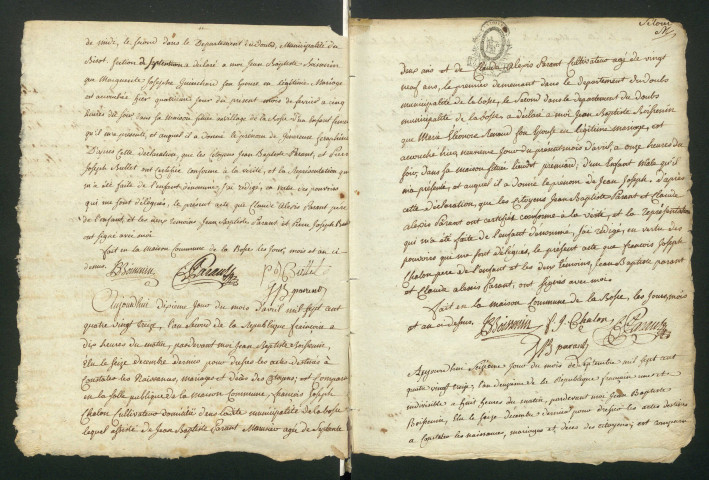 de midi, le second dans le Departement du doub, Municipalité du
Bisot. section de septfontaine a déclaré a moi Jean Baptiste Boissenin
que Marguerite Josephe Guinchau son Epouse en légitime Mariage
est accouchée hier quatrième jour du present mois de fevrier a cinq
heures du soir dans sa maison située au village de la Bosse d'un Enfant femelle
qu'il m'a presenté, et auquel il a donné le prénom de
D'apres cette déclaration, que les Citoyens Jean Baptiste Parant, et Pierre
Joseph Billet ont certifiée conforme a la verité, et la Représentation qui
m'a été faite de l'enfant dénommé, j'ai rédigé, en vertu des pouvoirs
qui me sont délégués, le present acte, que Claude Alexis Parant père
de l'enfant, et les deux témoins Jean Baptiste Parant et Pierre Joseph Billet
ont signé avec moi.
fait en la Maison Commune de la Bosse les jour, mois et an ci-
dessus.
Boissenin C A Parant P J Billet
J B parent
Aujourd'hui dixieme jour du mois d'avril mil sept cent
quatre vingt treize, l'an second de la Republique francoise a
dix heures du matin, pardevant moi Jean Baptiste Boissenin,
Elu le seize decembre dernier pour dresser les actes destinés à
Constater les Naissances, mariages et décès des Citoyens, est Comparu
en la salle publique de la maison Commune, françois Joseph
Chalon Cultivateur domicilié dans ladite municipalité de la bosse
lequel assisté de Jean Baptiste Parant Menuisier agé de soixante
deux ans et de Claude Alexis Parant Cultivateur agé de vingt
neuf ans, le premier demeurant dans le departement du doubs
municipalité de la bosse, le second dans le departement du doubs
municipalité de la bosse, a déclaré a moi Jean Baptiste Boissenin
que Marie Eléonore Renaud son Epouse en légitime mariage, est
accouchée hier neuvieme Jour du present mois d'avril, a onze heures du
soir, dans sa maison située lieudit d'un Enfant Male qu'il
m'a presenté, et auquel il a donné le prenom de Jean Joseph, d'après
cette déclaration, que les Citoyens Jean Baptiste Parant et Claude
Alexis Parant ont certifiée conforme a la verité, et la représentation
qui m'a été faite de l'enfant denommé, j'ai rédigé, en vertu des
pouvoirs qui me sont délégués, le present acte que françois Joseph
Chalon pere de l'enfant et les deux temoins, Jean Baptiste parant
et Claude alexis Parant, ont signés avec moi.
fait en la maison Commune de la Bosse, les jour, mois
et an ci-dessus.
Boissenin f. J. Chalon C A Parant
J B parent
Aujourd'hui septieme jour du mois de septembre mil sept cent
quatre vingt treize, l'an deuxieme de la Republique francoise une et
indivisible a huit heures du matin, pardevant moi Jean Baptiste
Boissenin, Elu le seize decembre dernier pour dresser les actes destinés
a Constater les naissances, mariages et décès des citoyens; est comparu